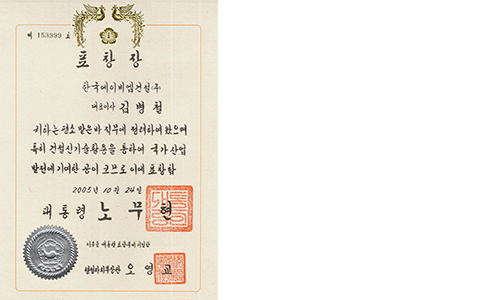 제 153999 호
표창장
한국에이비엠건설(주)
대표이사 김병철
귀하는 평소 맡은바 직무에 정려하여 왔으며
특히 건설신기술활용을 통하여 국가산업
발전에 기여한 공이 크므로 이에 표창함
2005년 10월 24일
대통령 노무현
이 증을 대통령 표창부에 기입함
행정자치부장관 오영교